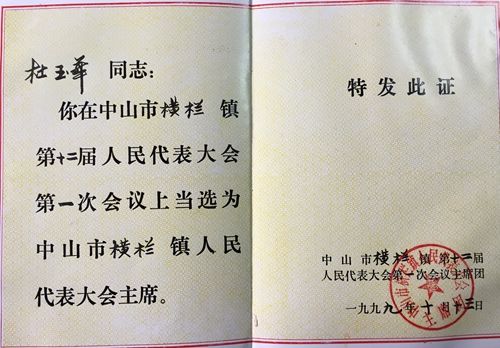 杜玉华 同志：
你在中山市横栏 镇
第十二届人民代表大会
第一次会议上当选为
中山市横栏 镇人民
代表大会主席。
特发此证
中 山 市横栏 镇 第十二届
人民代表大会第一次会议主席团
一九九九年十月十三日